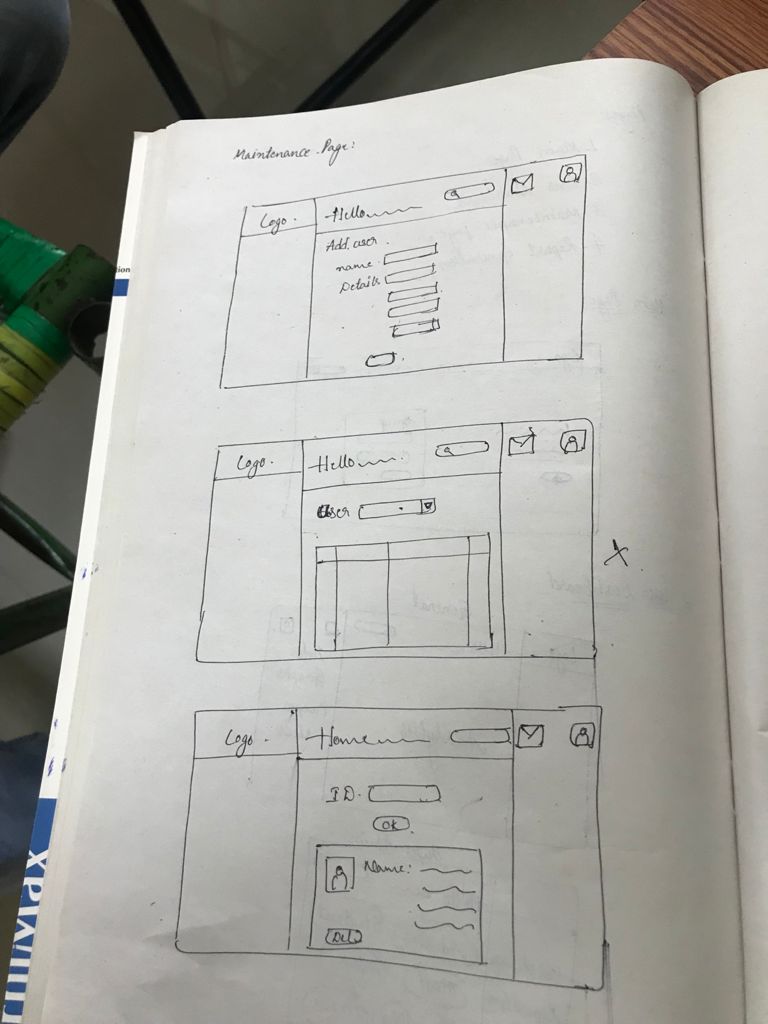 Maintenance Page:
Logo.
Hello
Add user.
name.
Details
Logo.
Hello
User
X
Logo.
Home
ID.
OK
Name:
Del
General